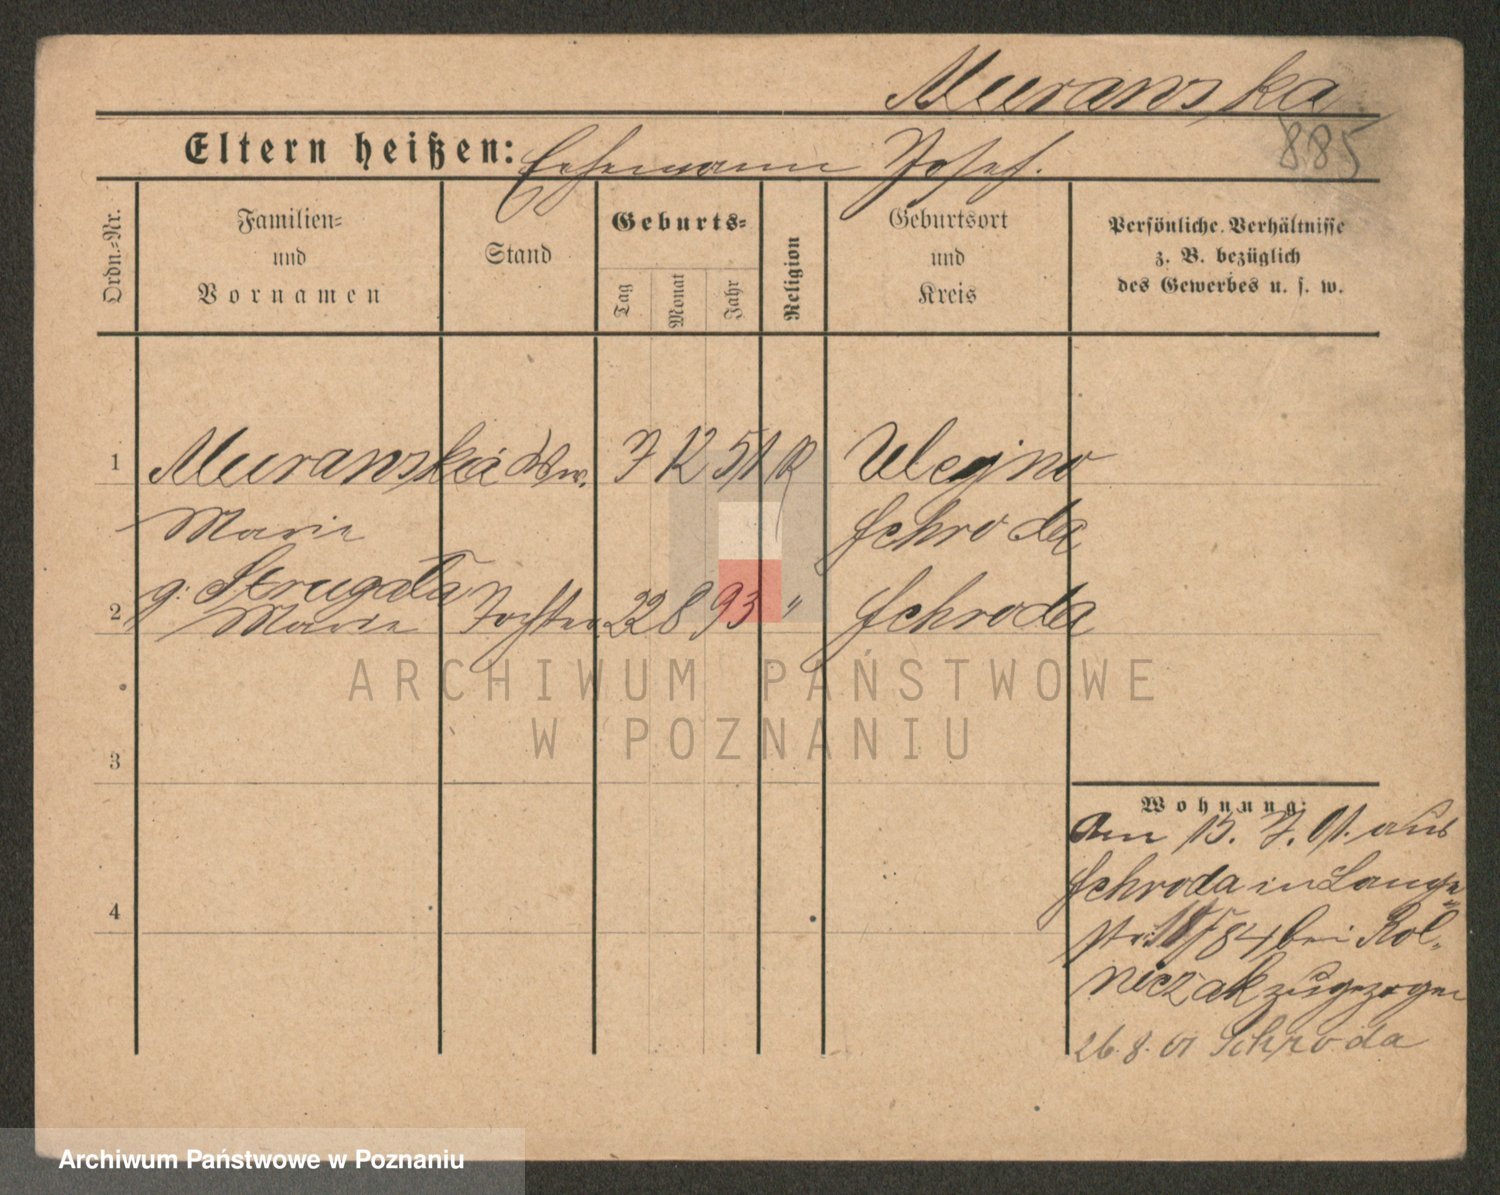 Muranska
885
Eltern heißen: Ehemann Josef.
Ordn.=Nr.
Familien=
und
Vornamen
Stand
Geburts=
Tag
Monat
Jahr
Religion
Geburtsort
und
Kreis
Persönliche Verhältnisse
z. B. bezüglich
des Gewerbes u. s. w.
1 Muranska Ww. 7 12 51 K Ulejno
Marie Schroda
g. Strugała
2 Marie Tochter 22 8 93 " Schroda
3
4
Wohnung:
Am 15. 7. 01. aus
Schroda in Lange
str. 84 bei Rol-
niczak zugezogen
26. 8. 01 Schroda
ARCHIWUM PAŃSTWOWE
W POZNANIU
Archiwum Państwowe w Poznaniu